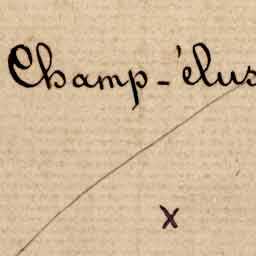 Champ-élus
x